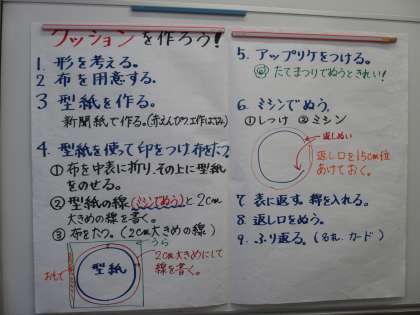 クッションを作ろう！
1. 形を考える。
2. 布を用意する。
3 型紙を作る。
新聞紙で作る。(赤えんぴつ、工作ばさみ)
4. 型紙を使って印をつけ布をたつ
① 布を中表に折り、その上に型紙
をのせる。
② 型紙の線(ミシンでぬう)と2cm
大きめの線を書く。
③ 布をたつ。(2cm大きめの線)
うら
おもて
型紙
2cm大きめにして
線を書く。
5. アップリケをつける。
たてまつりでぬうときれい！
6. ミシンでぬう。
①しつけ ②ミシン
返しぬい
返し口を15cm位
あけておく。
7. 表に返す。綿を入れる。
8. 返し口をぬう。
9. ふり返る。(名札、カード)